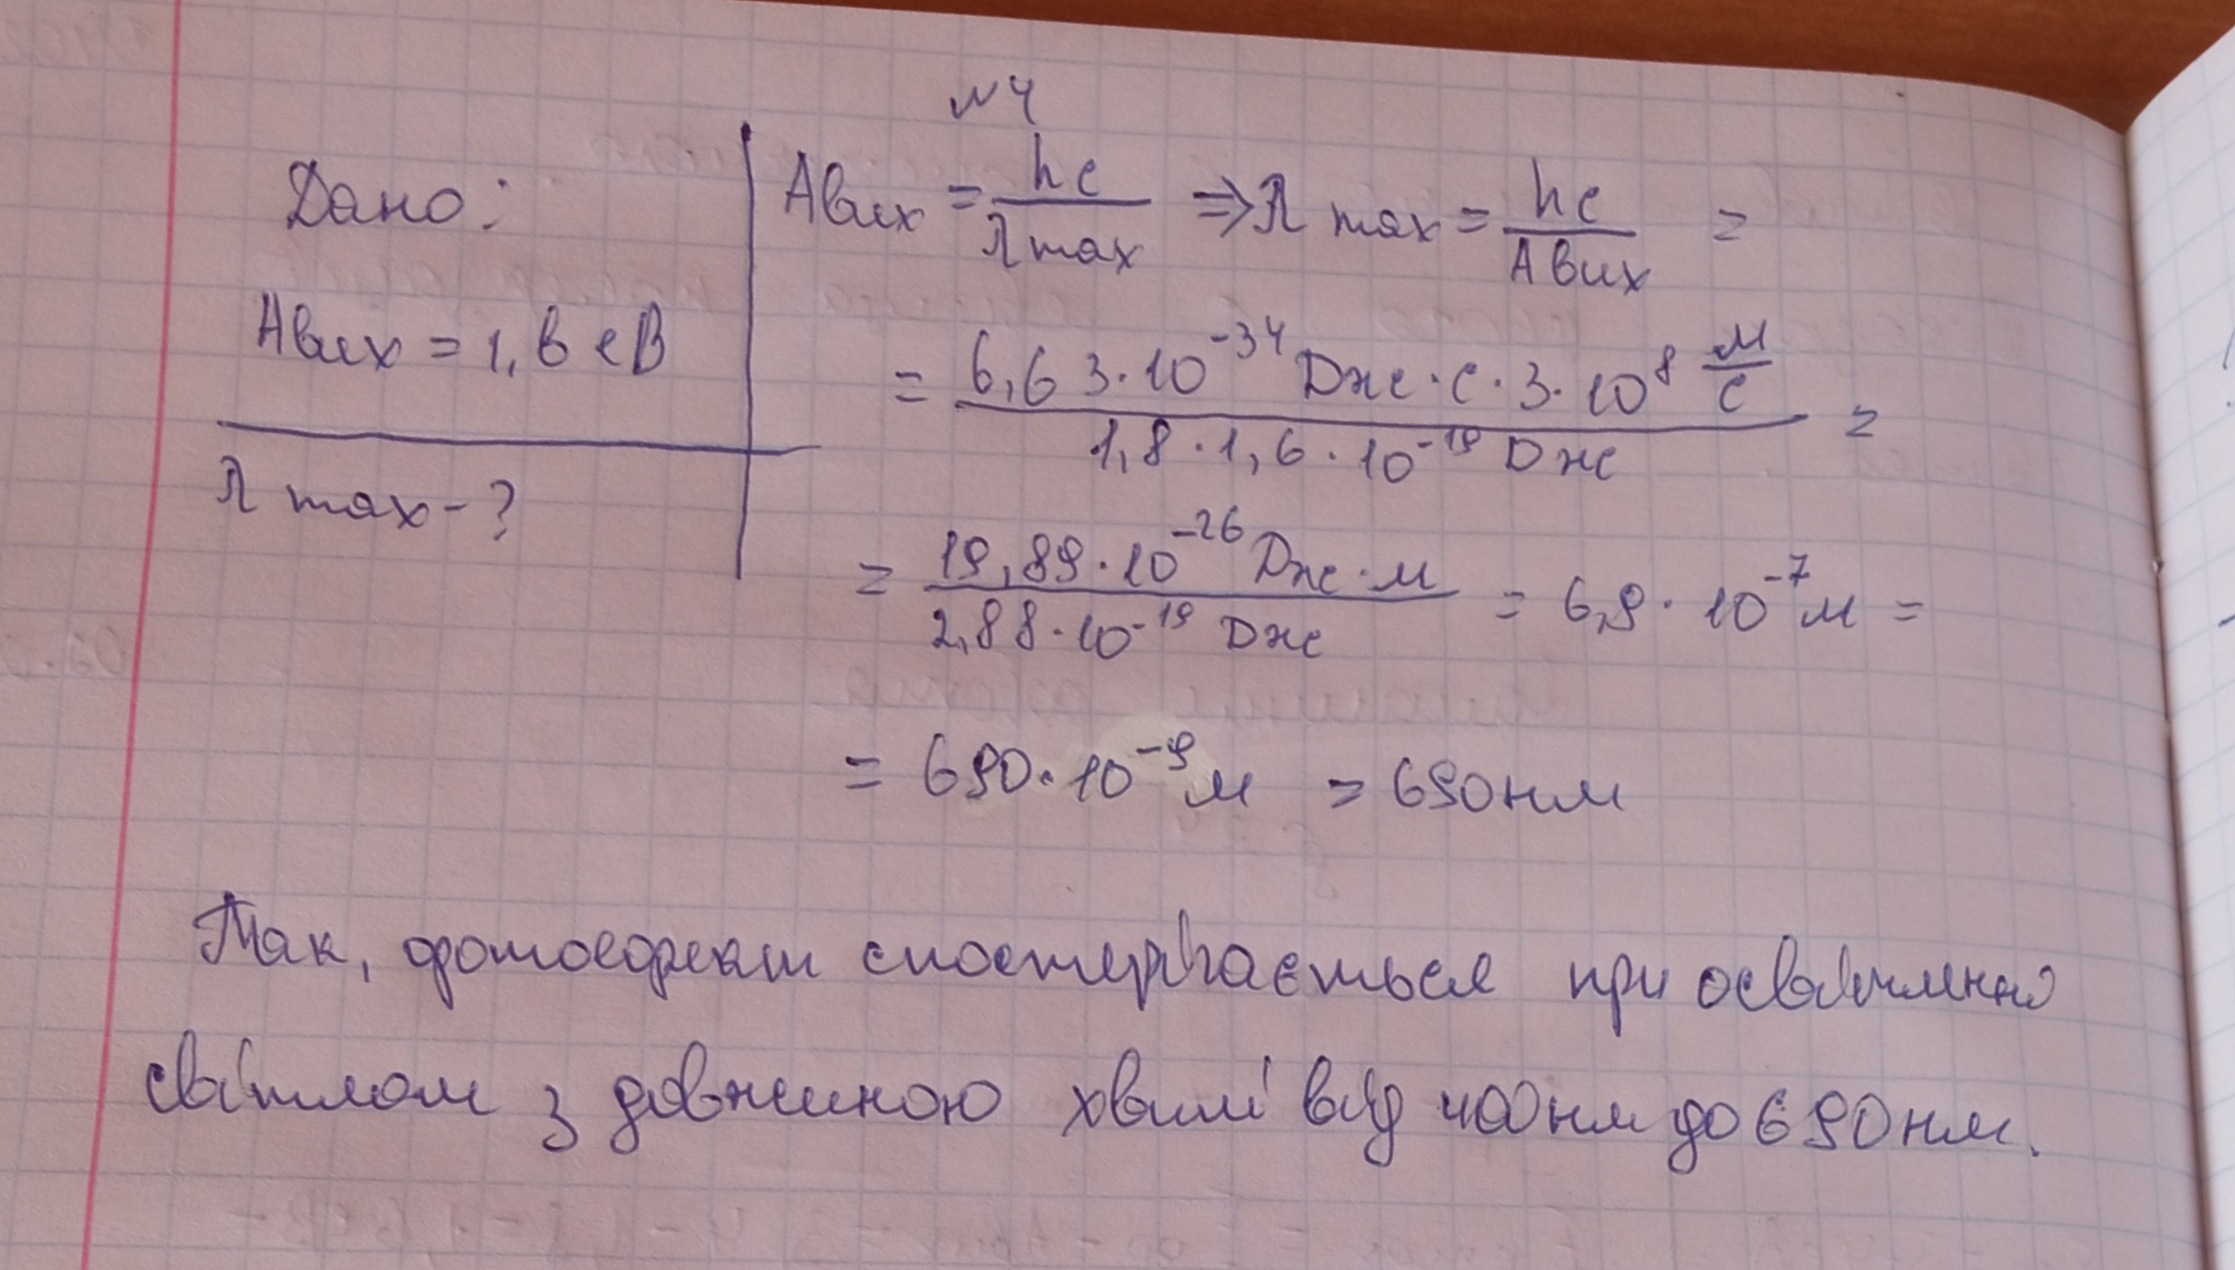 №4
Дано:
Aвих = 1,8 еВ
λ max - ?
Aвих = hc / λ max ⇒ λ max = hc / Aвих =
= 6,63·10⁻³⁴ Дж·с·3·10⁸ м/с / 1,8·1,6·10⁻¹⁹ Дж =
= 19,89·10⁻²⁶ Дж·м / 2,88·10⁻¹⁹ Дж = 6,9·10⁻⁷ м =
= 690·10⁻⁹ м = 690 нм
Так, фотоефект спостерігається при освітленні
світлом з довжиною хвилі від 400 нм до 690 нм.